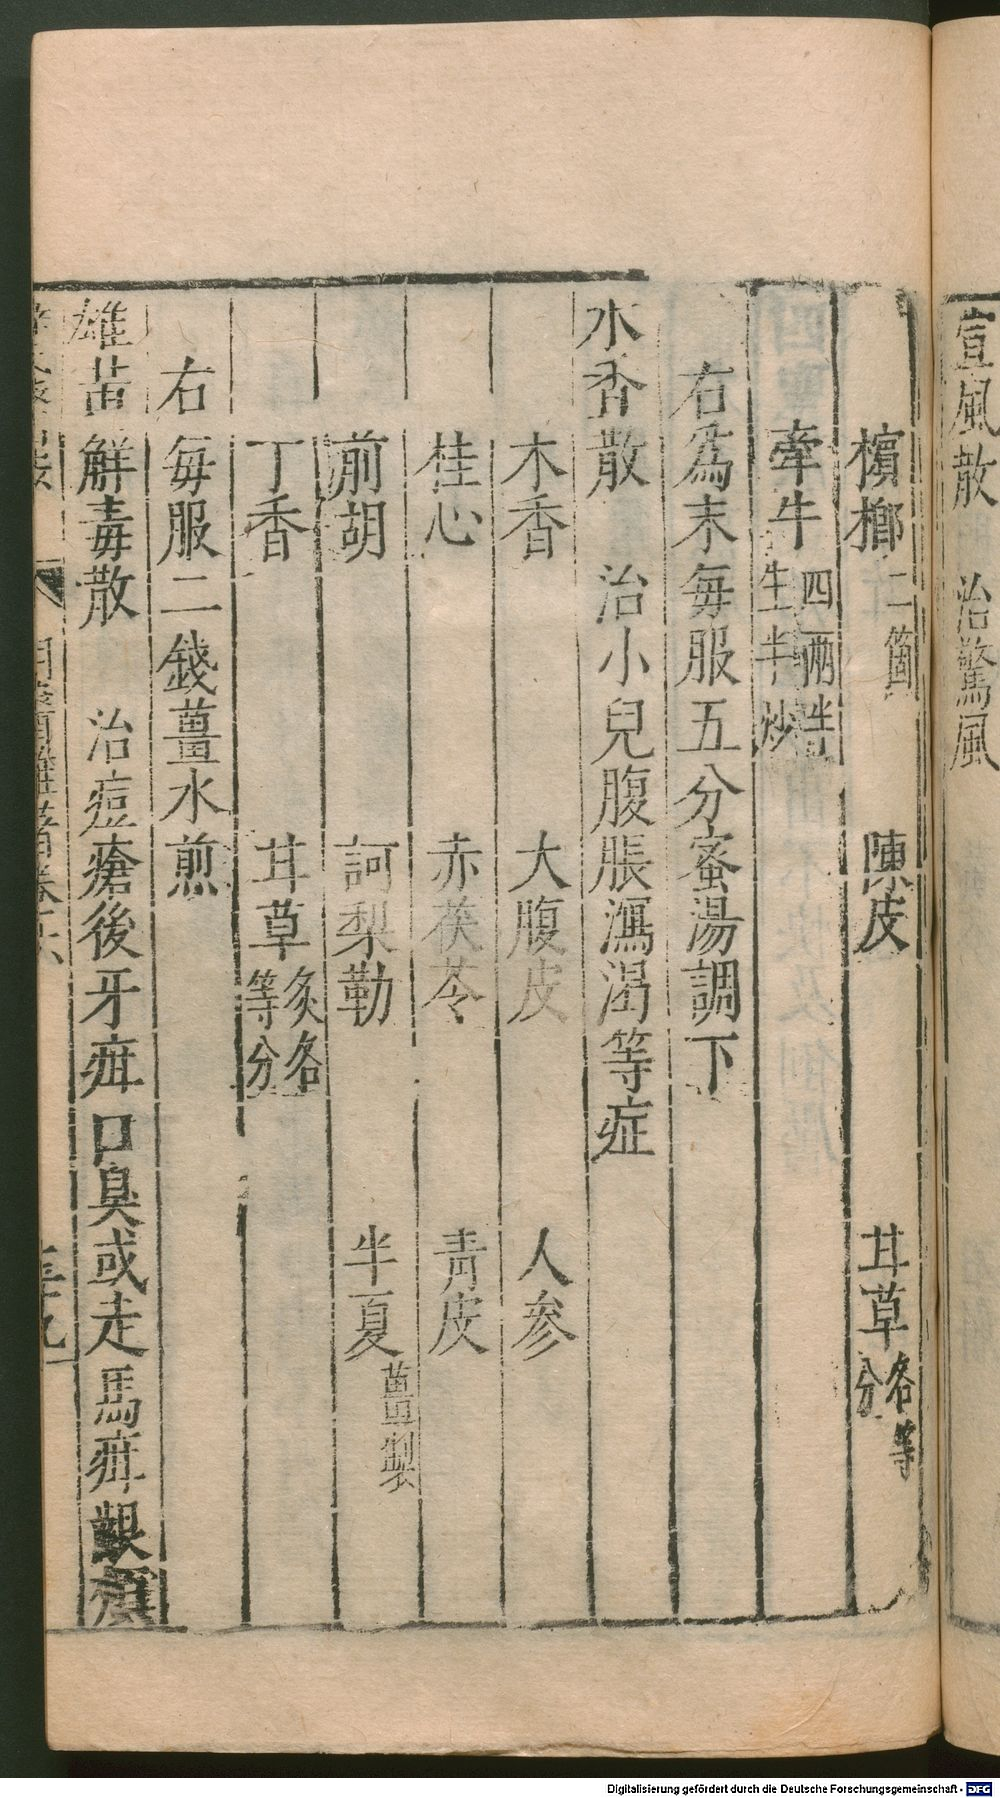 宣風散　治驚風
檳榔二箇　陳皮　甘草各等分
牽牛四兩半生半炒
右為末每服五分蜜湯調下
木香散　治小兒腹脹瀉渴等症
木香　大腹皮　人參
桂心　赤茯苓　青皮
前胡　訶梨勒　半夏薑製
丁香　甘草炙各等分
右每服二錢薑水煎
雄黃解毒散　治痘瘡後牙疳口臭或走馬疳齦
Digitalisierung gefördert durch die Deutsche Forschungsgemeinschaft - DFG